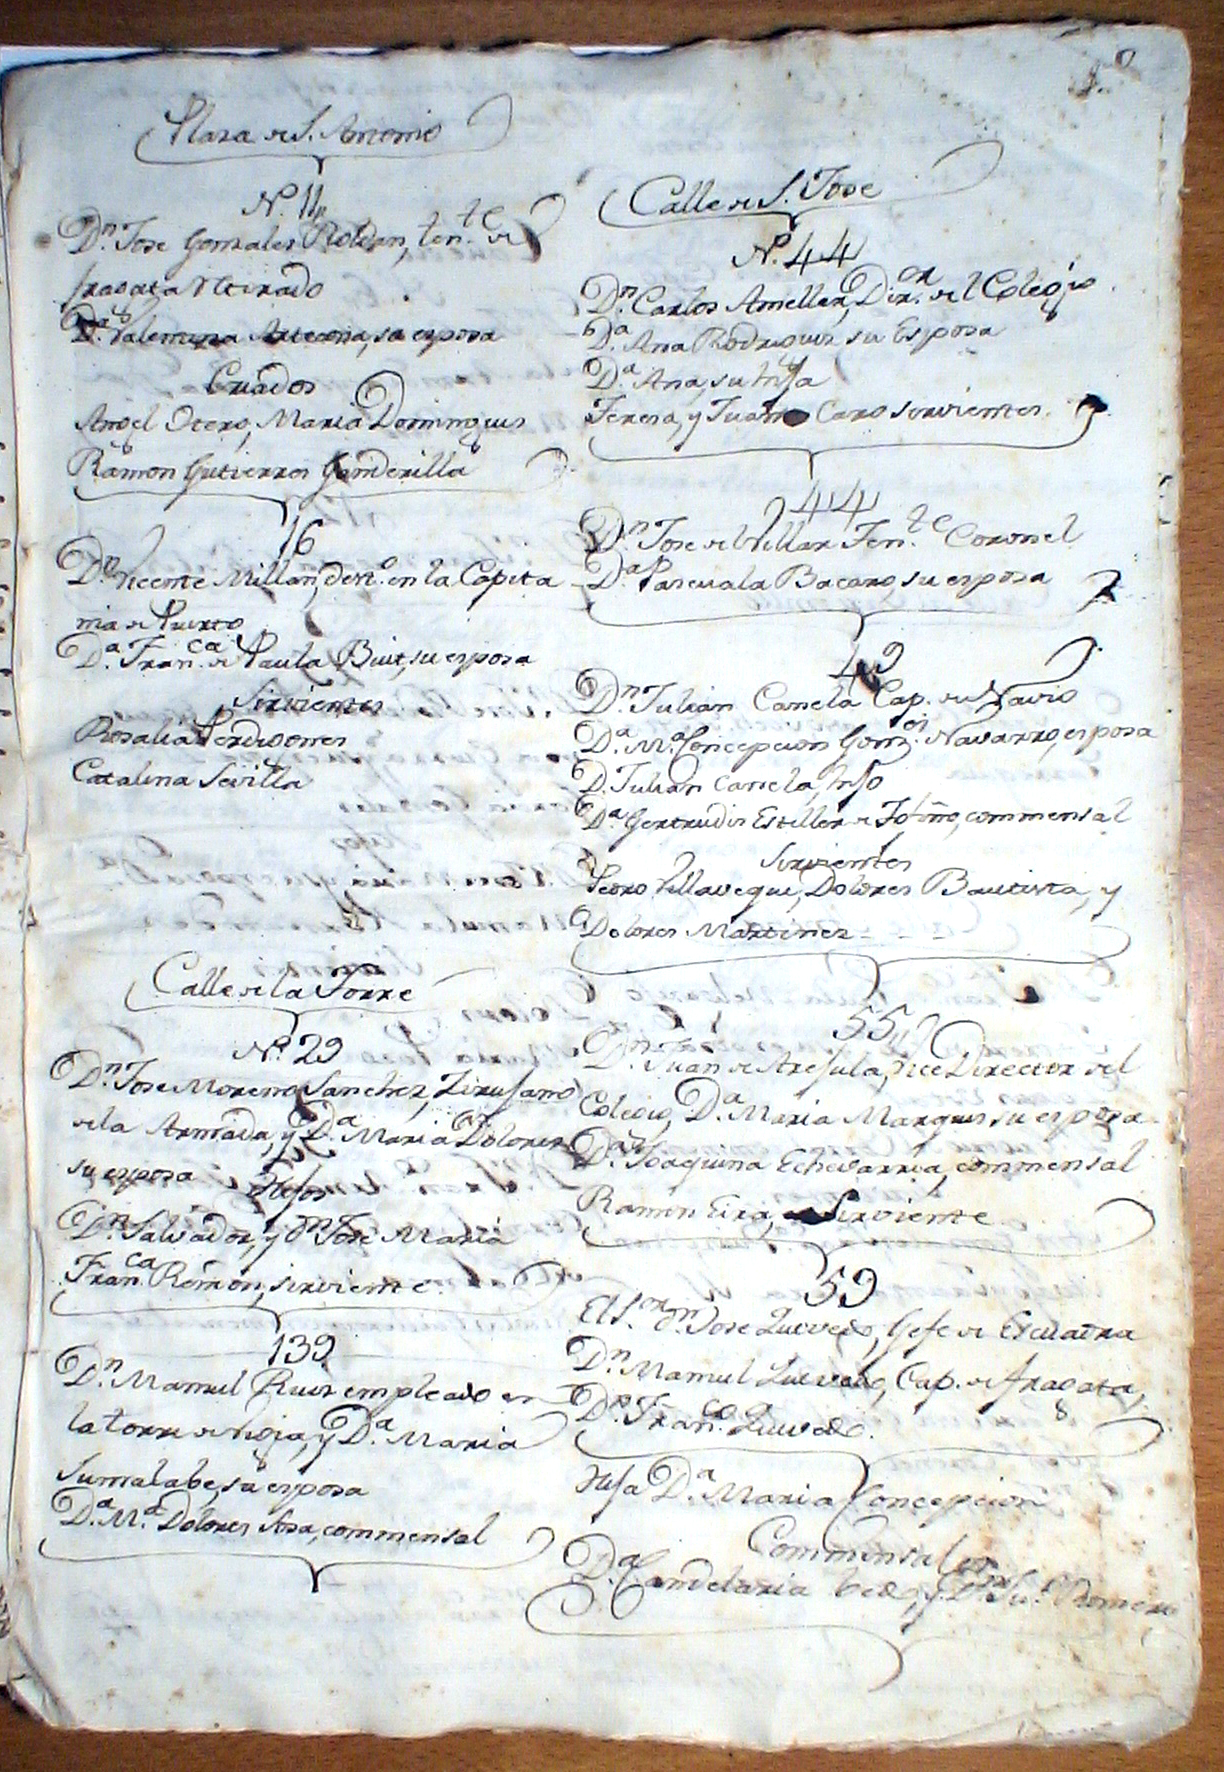 Plaza de S. Antonio
N.º 11
Dn. Jose Gonzales Roldan, ten.te de
fragata retirado
Da. Valentina Artecona, su esposa
Criados
Angel Otero, Maria Dominguis
Ramon Gutierres Ganderilla
16
Dn. Vicente Millan, en la Capita
nia de Puerto
Da. Fran.ca de Paula Biut, su esposa
Sirvientes
Rosalia Perdigones
Catalina Sevilla
Calle de la Torre
N.º 29
Dn. Jose Moreno Sanchez, Zirujano
de la Armada, y Da. Maria Dolores
su esposa
Hijos
Dn. Salvador, y Dn. Jose Maria
Fran.ca Remon, sirviente.
139
Dn. Manuel Ruiz empleado en
la torre de vigia, y Da. Maria
su esposa
Da. Ma. Dolores Sosa, commensal
Calle de S. Jose
N.º 44
Dn. Carlos Ameller, Dir.or del Colegio.
Da. Ana Rodriguis, su Esposa
Da. Ana, su hija
Teresa, y Juana Caro sirvientes.
44
Dn. Jose de Villar Ten.te Coronel
Da. Pascuala Bacaro, su esposa
49
Dn. Julian Canela Cap. de Navio
Da. Ma. Concepcion Gonz. Navarro, esposa
D. Julian Canela, hijo
Da. Gertrudis Estiller de commensal
Sirvientes
Pedro Villavegui, Dolores Bautista, y
Dolores Martinez
55
Dn. Juan de Arejula, Vice Director del
Colegio, Da. Maria Marquis su esposa
Da. Joaquina Echevarria, commensal
Ramon Eira, Sirviente
59
El S.or Dn. Jose Quevedo, Gefe de Escuadra
Dn. Manuel Quevedo, Cap. de fragata,
Dn. Fran.co Quevedo.
Hija Da. Maria Concepcion
Commensales
Da. Candelaria y Romero